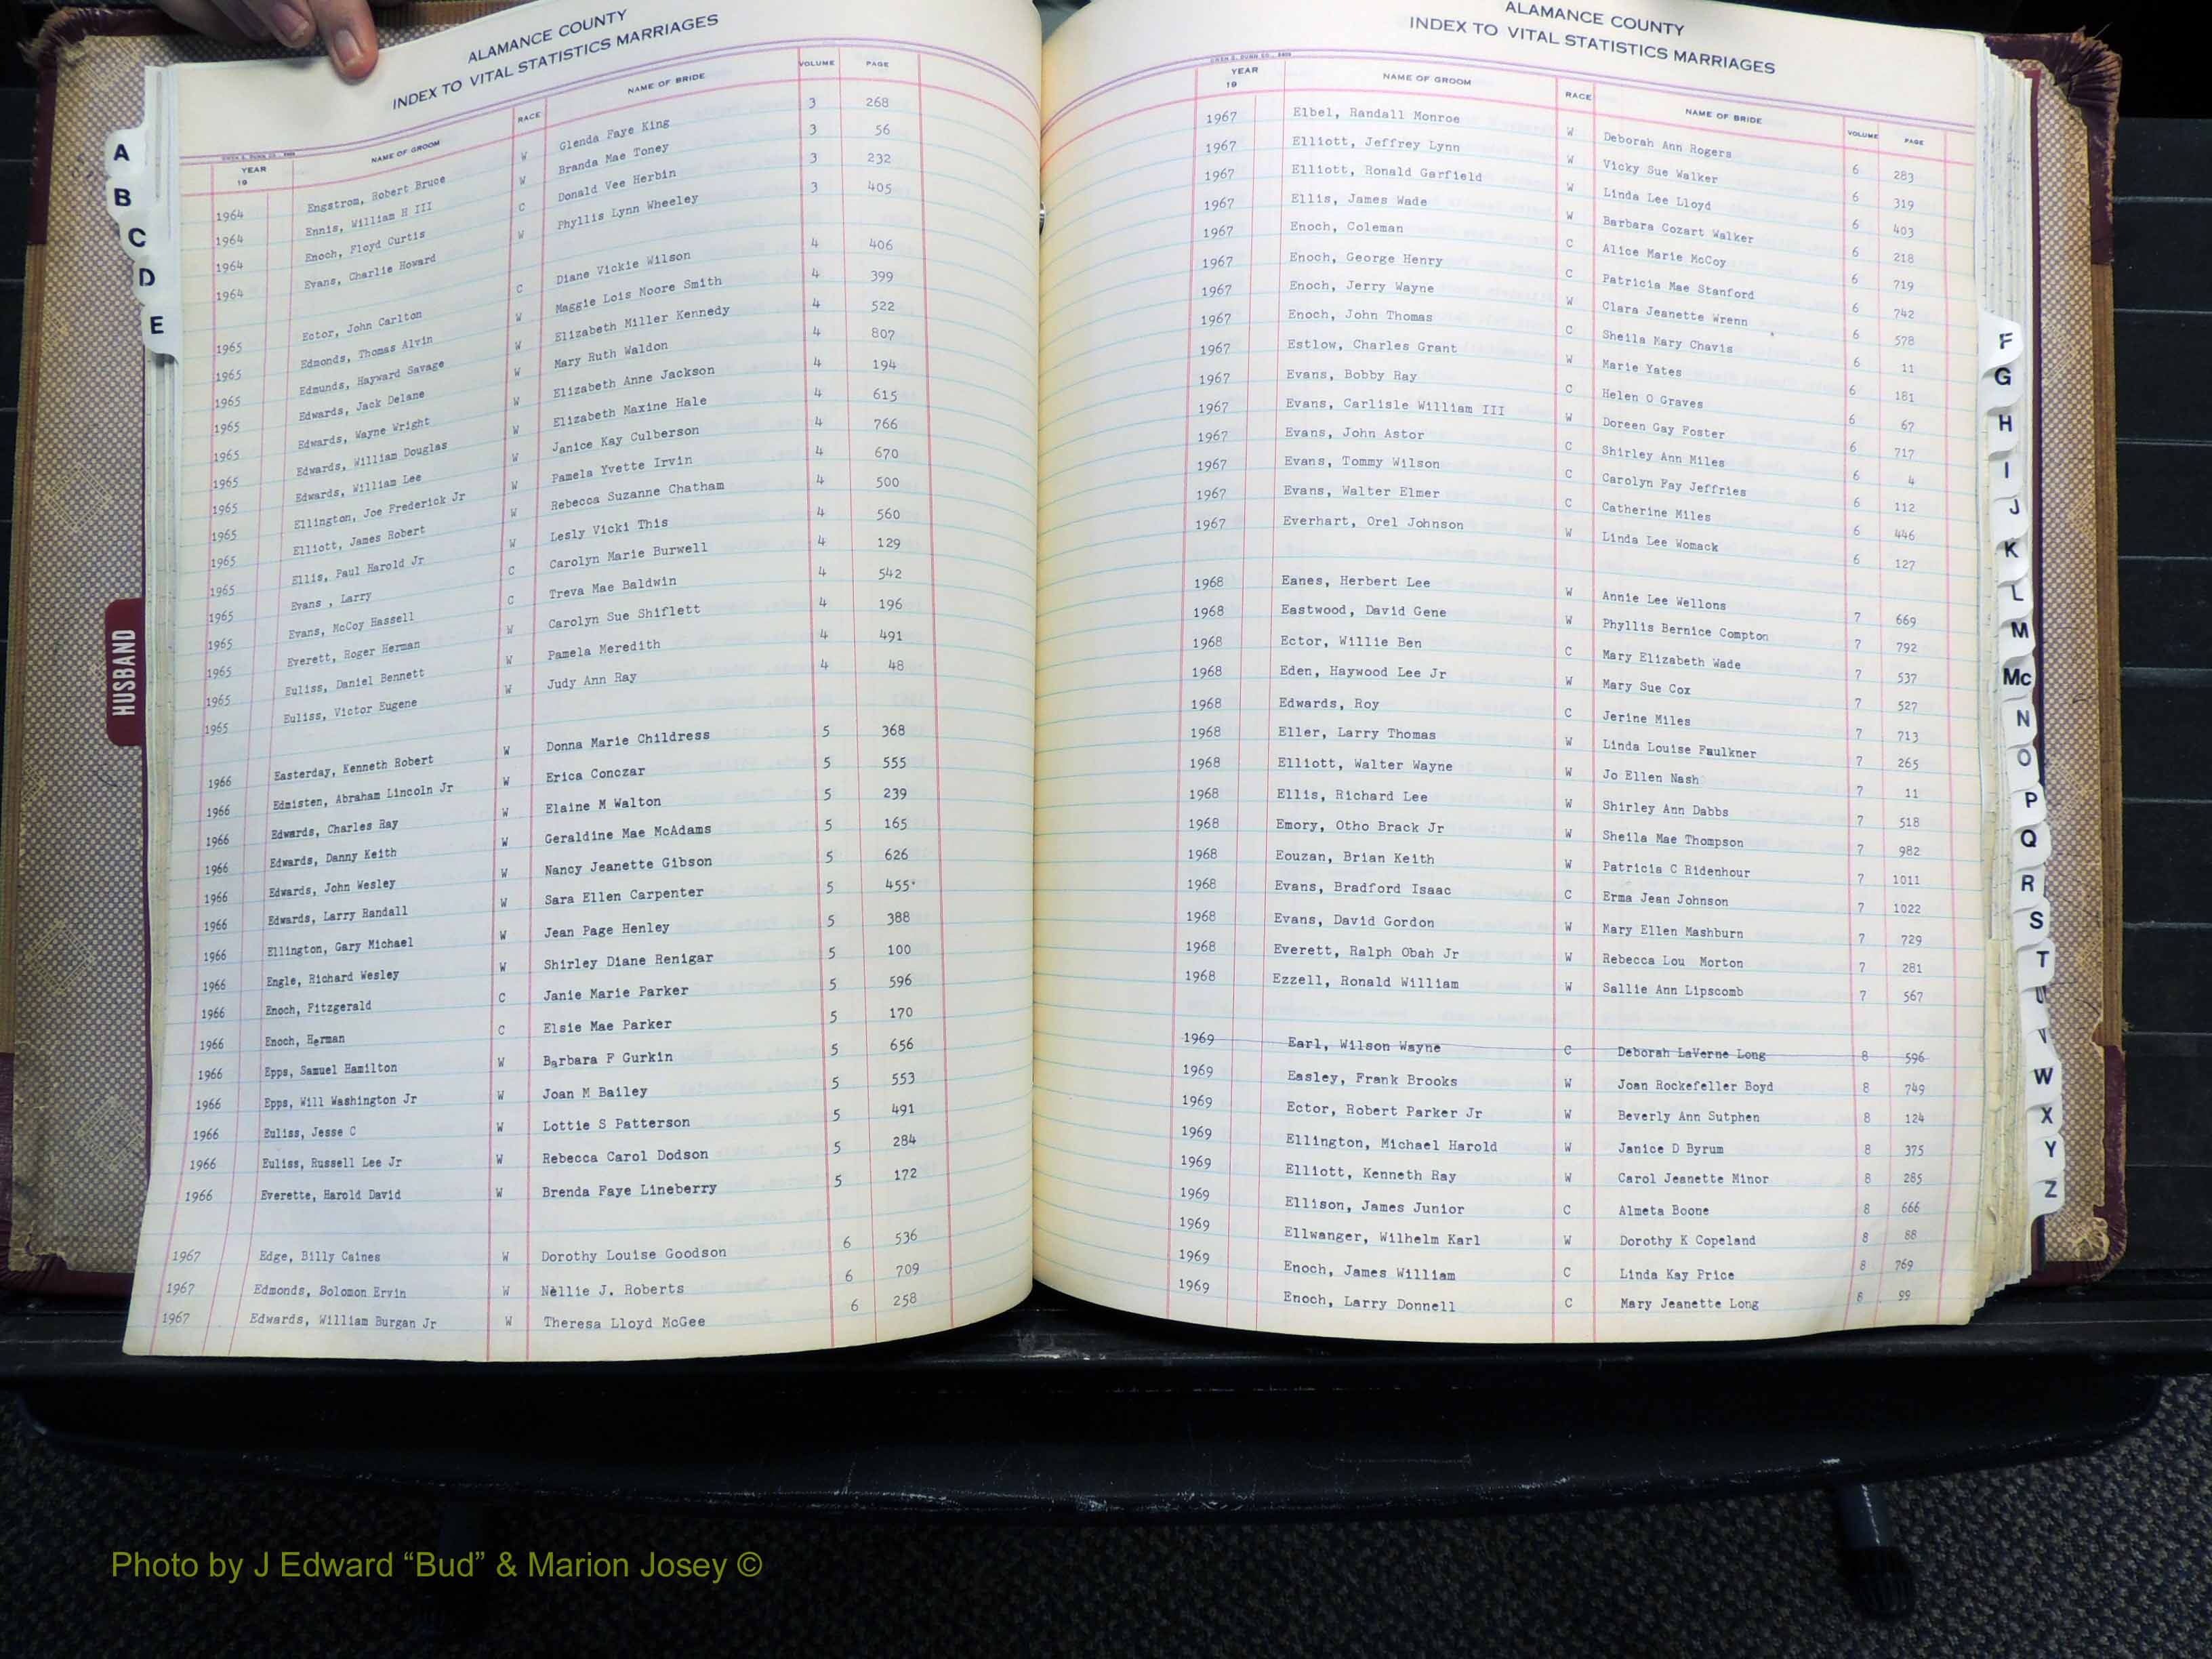 ALAMANCE COUNTY
INDEX TO VITAL STATISTICS MARRIAGES
OWEN G. DUNN CO.
YEAR 19 NAME OF GROOM RACE NAME OF BRIDE VOLUME PAGE
1964 Engstrom, Robert Bruce W Glenda Faye King 3 268
1964 Ennis, William H III W Branda Mae Toney 3 56
1964 Enoch, Floyd Curtis C Donald Vee Herbin 3 232
1964 Evans, Charlie Howard W Phyllis Lynn Wheeley 3 405
1965 Ector, John Carlton C Diane Vickie Wilson 4 406
1965 Edmonds, Thomas Alvin W Maggie Lois Moore Smith 4 399
1965 Edmunds, Hayward Savage W Elizabeth Miller Kennedy 4 522
1965 Edwards, Jack Delane W Mary Ruth Waldon 4 807
1965 Edwards, Wayne Wright W Elizabeth Anne Jackson 4 194
1965 Edwards, William Douglas W Elizabeth Maxine Hale 4 615
1965 Edwards, William Lee W Janice Kay Culberson 4 766
1965 Ellington, Joe Frederick Jr W Pamela Yvette Irvin 4 670
1965 Elliott, James Robert W Rebecca Suzanne Chatham 4 500
1965 Ellis, Paul Harold Jr W Lesly Vicki This 4 560
1965 Evans , Larry C Carolyn Marie Burwell 4 129
1965 Evans, McCoy Hassell C Treva Mae Baldwin 4 542
1965 Everett, Roger Herman W Carolyn Sue Shiflett 4 196
1965 Euliss, Daniel Bennett W Pamela Meredith 4 491
1965 Euliss, Victor Eugene W Judy Ann Ray 4 48
1966 Easterday, Kenneth Robert W Donna Marie Childress 5 368
1966 Edmisten, Abraham Lincoln Jr W Erica Conczar 5 555
1966 Edwards, Charles Ray W Elaine M Walton 5 239
1966 Edwards, Danny Keith W Geraldine Mae McAdams 5 165
1966 Edwards, John Wesley W Nancy Jeanette Gibson 5 626
1966 Edwards, Larry Randall W Sara Ellen Carpenter 5 455
1966 Ellington, Gary Michael W Jean Page Henley 5 388
1966 Engle, Richard Wesley W Shirley Diane Renigar 5 100
1966 Enoch, Fitzgerald C Janie Marie Parker 5 596
1966 Enoch, Herman C Elsie Mae Parker 5 170
1966 Epps, Samuel Hamilton W Barbara F Gurkin 5 656
1966 Epps, Will Washington Jr W Joan M Bailey 5 553
1966 Euliss, Jesse C W Lottie S Patterson 5 491
1966 Euliss, Russell Lee Jr W Rebecca Carol Dodson 5 284
1966 Everette, Harold David W Brenda Faye Lineberry 5 172
1967 Edge, Billy Caines W Dorothy Louise Goodson 6 536
1967 Edmonds, Solomon Ervin W Nellie J. Roberts 6 709
1967 Edwards, William Burgan Jr W Theresa Lloyd McGee 6 258
A
B
C
D
E
HUSBAND
ALAMANCE COUNTY
INDEX TO VITAL STATISTICS MARRIAGES
OWEN G. DUNN CO.
YEAR 19 NAME OF GROOM RACE NAME OF BRIDE VOLUME PAGE
1967 Elbel, Randall Monroe W Deborah Ann Rogers 6 283
1967 Elliott, Jeffrey Lynn W Vicky Sue Walker 6 319
1967 Elliott, Ronald Garfield W Linda Lee Lloyd 6 403
1967 Ellis, James Wade W Barbara Cozart Walker 6 218
1967 Enoch, Coleman C Alice Marie McCoy 6 719
1967 Enoch, George Henry C Patricia Mae Stanford 6 742
1967 Enoch, Jerry Wayne W Clara Jeanette Wrenn 6 578
1967 Enoch, John Thomas C Sheila Mary Chavis 6 11
1967 Estlow, Charles Grant W Marie Yates 6 181
1967 Evans, Bobby Ray C Helen O Graves 6 67
1967 Evans, Carlisle William III W Doreen Gay Foster 6 717
1967 Evans, John Astor C Shirley Ann Miles 6 4
1967 Evans, Tommy Wilson C Carolyn Fay Jeffries 6 112
1967 Evans, Walter Elmer C Catherine Miles 6 446
1967 Everhart, Orel Johnson W Linda Lee Womack 6 127
1968 Eanes, Herbert Lee W Annie Lee Wellons 7 669
1968 Eastwood, David Gene W Phyllis Bernice Compton 7 792
1968 Ector, Willie Ben C Mary Elizabeth Wade 7 537
1968 Eden, Haywood Lee Jr W Mary Sue Cox 7 527
1968 Edwards, Roy C Jerine Miles 7 713
1968 Eller, Larry Thomas W Linda Louise Faulkner 7 265
1968 Elliott, Walter Wayne W Jo Ellen Nash 7 11
1968 Ellis, Richard Lee W Shirley Ann Dabbs 7 518
1968 Emory, Otho Brack Jr W Sheila Mae Thompson 7 982
1968 Eouzan, Brian Keith W Patricia C Ridenhour 7 1011
1968 Evans, Bradford Isaac C Erma Jean Johnson 7 1022
1968 Evans, David Gordon W Mary Ellen Mashburn 7 729
1968 Everett, Ralph Obah Jr W Rebecca Lou Morton 7 281
1968 Ezzell, Ronald William W Sallie Ann Lipscomb 7 567
1969 Earl, Wilson Wayne C Deborah LaVerne Long 8 596
1969 Easley, Frank Brooks W Joan Rockefeller Boyd 8 749
1969 Ector, Robert Parker Jr W Beverly Ann Sutphen 8 124
1969 Ellington, Michael Harold W Janice D Byrum 8 375
1969 Elliott, Kenneth Ray W Carol Jeanette Minor 8 285
1969 Ellison, James Junior C Almeta Boone 8 666
1969 Ellwanger, Wilhelm Karl W Dorothy K Copeland 8 88
1969 Enoch, James William C Linda Kay Price 8 769
1969 Enoch, Larry Donnell C Mary Jeanette Long 8 99
F
G
H
I
J
K
L
M
Mc
N
O
P
Q
R
S
T
U
V
W
X
Y
Z
Photo by J Edward “Bud” & Marion Josey ©